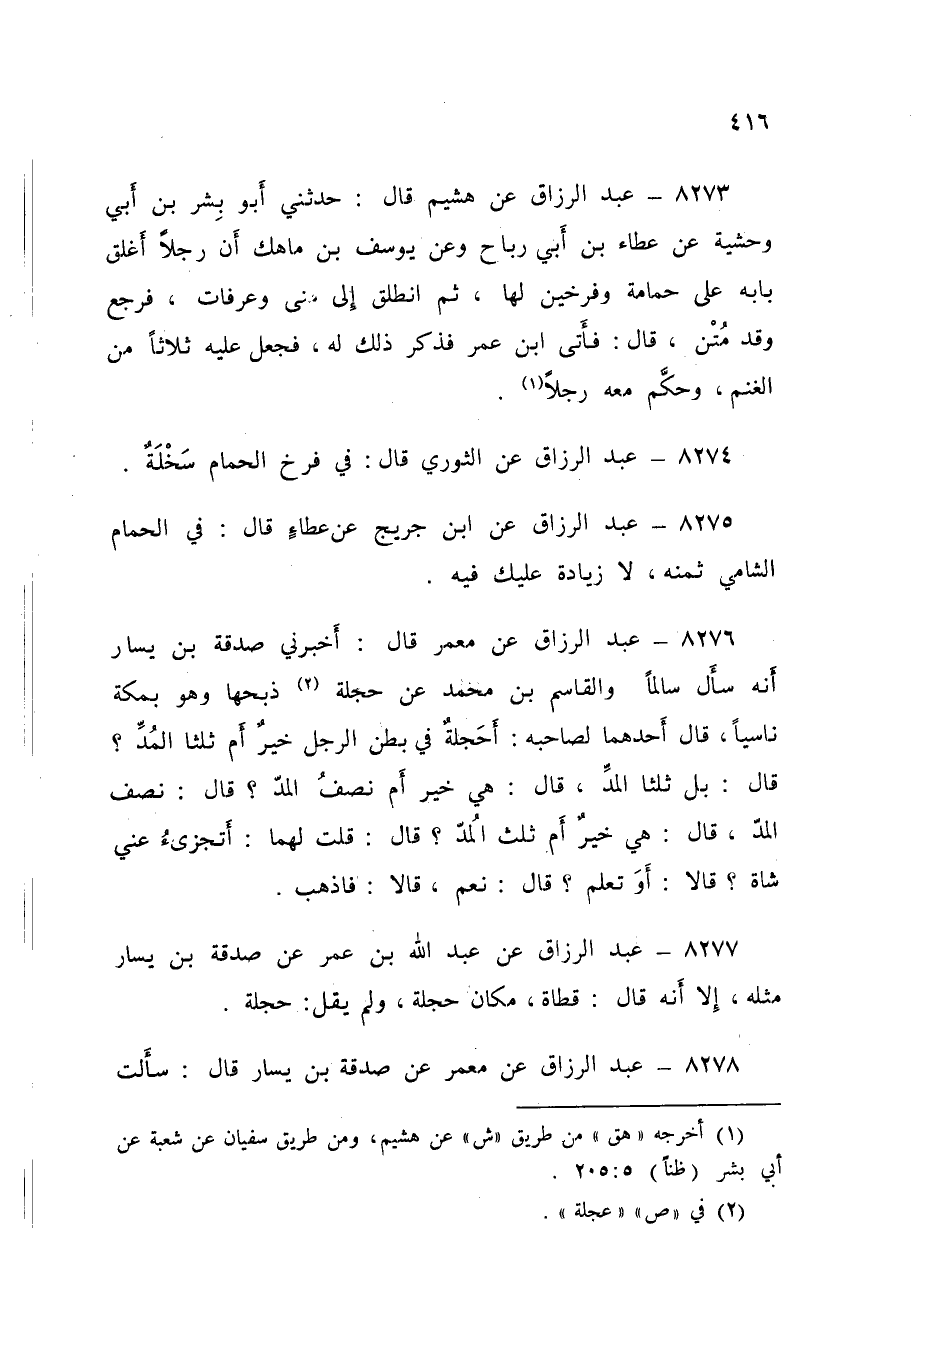 ٤١٦
٨٢٧٣ – عبد الرزاق عن هشيم قال : حدثني أَبو بِشر بن أَبي
وحشية عن عطاء بن أَبي رباح وعن يوسف بن ماهك أن رجلاً أَغلق
بابه على حمامة وفرخين لها ، ثم انطلق إلى منى وعرفات ، فرجع
وقد مُتْن ، قال : فأَتى ابن عمر فذكر ذلك له ، فجعل عليه ثلاثاً من
الغنم ، وحكَّم معه رجلاً(١) .
٨٢٧٤ – عبد الرزاق عن الثوري قال : في فرخ الحمام سَخْلَةٌ .
٨٢٧٥ – عبد الرزاق عن ابن جريج عن عطاءٍ قال : في الحمام
الشامي ثمنه ، لا زيادة عليك فيه .
٨٢٧٦ – عبد الرزاق عن معمر قال : أَخبرني صدقة بن يسار
أَنه سأَل سالماً والقاسم بن محمد عن حجلة (٢) ذبحها وهو بمكة
ناسياً ، قال أَحدهما لصاحبه : أَحَجلةٌ في بطن الرجل خيرٌ أَم ثلثا المُدِّ ؟
قال : بل ثلثا المدِّ ، قال : هي خير أَم نصفُ المدّ ؟ قال : نصف
المدّ ، قال : هي خيرٌ أَم ثلث المُدّ ؟ قال : قلت لهما : أَتجزىءُ عني
شاة ؟ قالا : أَوَ تعلم ؟ قال : نعم ، قالا : فاذهب .
٨٢٧٧ – عبد الرزاق عن عبد الله بن عمر عن صدقة بن يسار
مثله ، إلا أَنه قال : قطاة ، مكان حجلة ، ولم يقل : حجلة .
٨٢٧٨ – عبد الرزاق عن معمر عن صدقة بن يسار قال : سأَلت
(١) أخرجه «هق» من طريق «ش» عن هشيم، ومن طريق سفيان عن شعبة عن
أبي بشر (ظناً) ٥:٢٠٥ .
(٢) في «ص» «عجلة» .